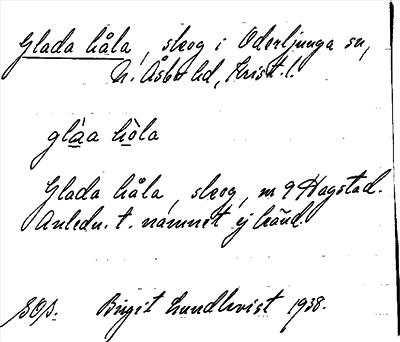 Glada håla, skog i Oderljunga sn,
N. Åsbo hd, Krist. l.
glàa hòla
Glada håla, skog, m 9 Hagstad.
Anledn. t. namnet ej känd.
SOA. Birgit Lundkvist 1938.